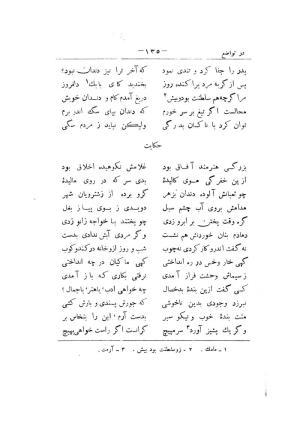 در تواضع
— ۱۳۵ —
پدر را جفا کرد و تندی نمود که آخر ترا نیز دندان نبود؟
پس از گریه مرد پراکنده روز بخندید کای بابک۱ دلفروز
مرا گرچه هم سلطنت بود و بیش۲ دریغ آمدم کام و دندان خویش
محالست اگر تیغ بر سر خورم که دندان بپای سگ اندر برم
توان کرد با ناکسان بدرگی ولیکن نیاید ز مردم سگی
حکایت
بزرگی هنرمند آفاق بود غلامش نکوهیده اخلاق بود
ازین خفرگی موی کالیدهٔ بدی سرکه در روی مالیدهٔ
چو ثعبانش آلوده دندان بزهر گرو برده از زشترویان شهر
مدامش بروی آب چشم سبل دویدی ز بوی پیاز بغل
گره وقت پختن بر ابرو زدی چو پختند با خواجه زانو زدی
دمادم بنان خوردنش هم نشست وگر مردی آبش ندادی بدست
نه گفت اندرو کار کردی نه چوب شب و روز ازو خانه در کندوکوب
گهی خار و خس در ره انداختی گهی ماکیان در چه انداختی
ز سیماش وحشت فراز آمدی نرفتی بکاری که باز آمدی
کسی گفت ازین بندهٔ بدخصال چه خواهی ادب، یا هنر، یا جمال؟
نیرزد وجودی بدین ناخوشی که جورش پسندی و بارش کشی
منت بندهٔ خوب و نیکو سیر بدست آرم، این را بنخاس بر
وگر یک پشیز آورد۳ سر مپیچ گرانست اگر راست خواهی بهیچ
۱ – مامک. ۲ – زور سلطنت بود بیش. ۳ – آرمت.